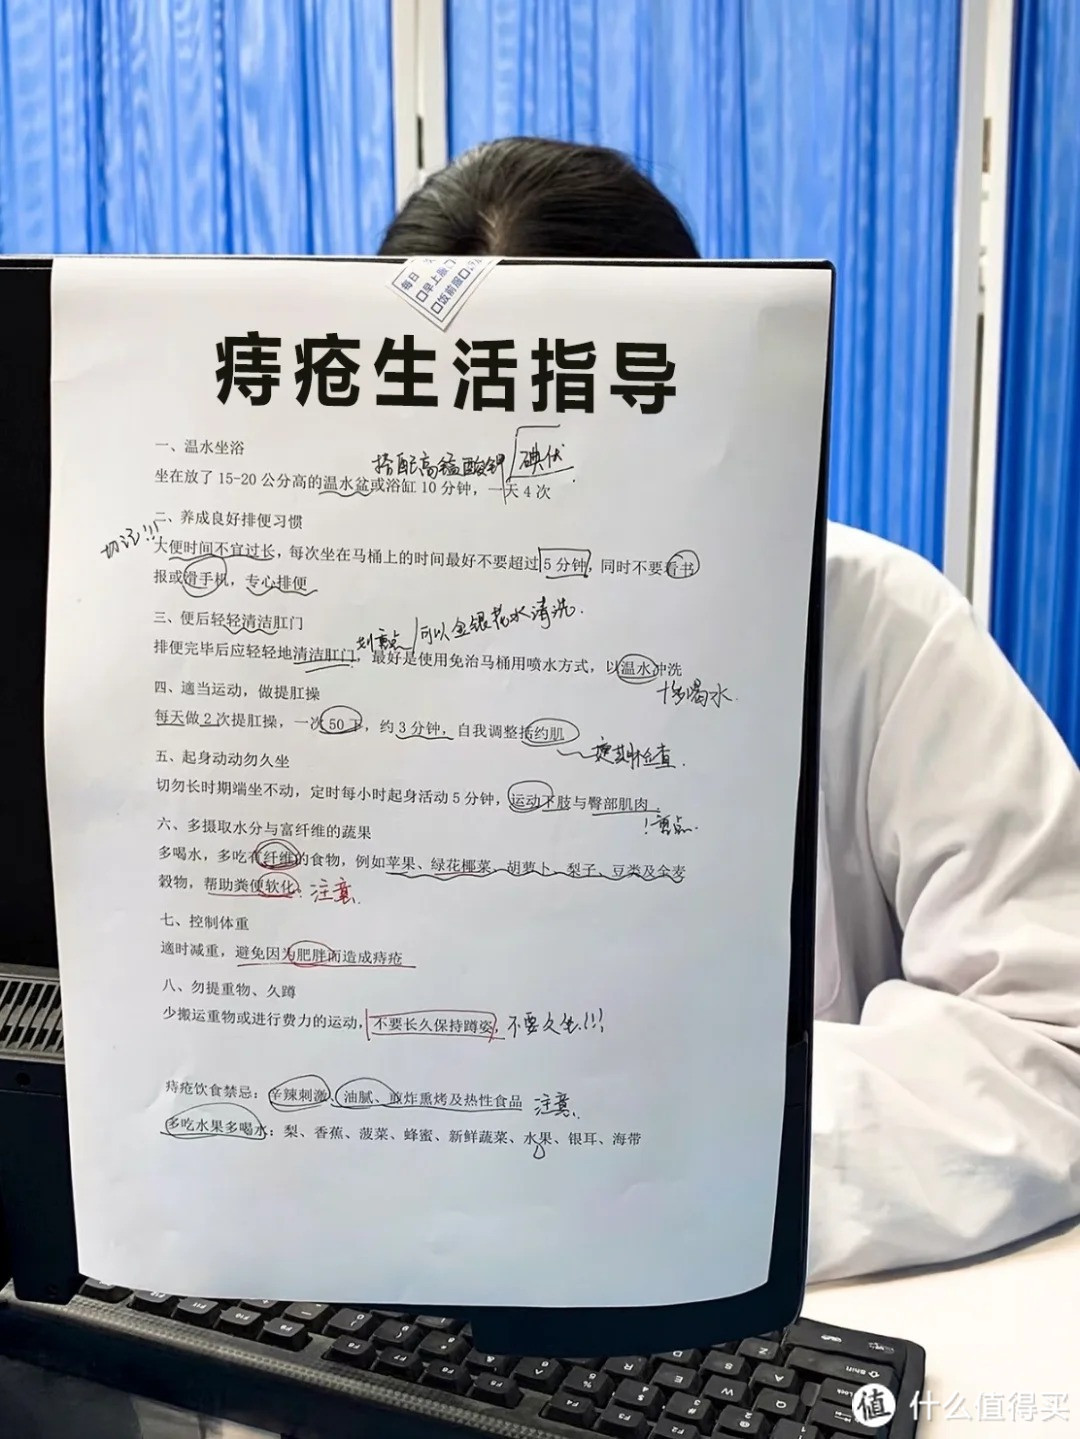 每日
早上服
饭前服
痔疮生活指导
一、温水坐浴
搭配高锰酸钾 碘伏
坐在放了 15-20 公分高的温水盆或浴缸 10 分钟，一天 4 次
二、养成良好排便习惯
切记!!!
大便时间不宜过长，每次坐在马桶上的时间最好不要超过 5 分钟，同时不要看书
报或滑手机，专心排便
三、便后轻轻清洁肛门
划重点 可以金银花水清洗.
排便完毕后应轻轻地清洁肛门，最好是使用免治马桶用喷水方式，以温水冲洗
多喝水.
四、適当运动，做提肛操
每天做 2 次提肛操，一次 50 下，约 3 分钟，自我调整括约肌
定期检查.
五、起身动动勿久坐
切勿长时期端坐不动，定时每小时起身活动 5 分钟，运动下肢与臀部肌肉
!重点.
六、多摄取水分与富纤维的蔬果
多喝水，多吃有纤维的食物，例如苹果、绿花椰菜、胡萝卜、梨子、豆类及全麦
榖物，帮助粪便软化. 注意.
七、控制体重
適时减重，避免因为肥胖而造成痔疮
八、勿提重物、久蹲
少搬运重物或进行费力的运动，不要长久保持蹲姿， 不要久坐!!!
痔疮饮食禁忌：辛辣刺激、油腻、煎炸熏烤及热性食品 注意.
多吃水果多喝水：梨、香蕉、菠菜、蜂蜜、新鲜蔬菜、水果、银耳、海带
Shift
Lock
值 什么值得买